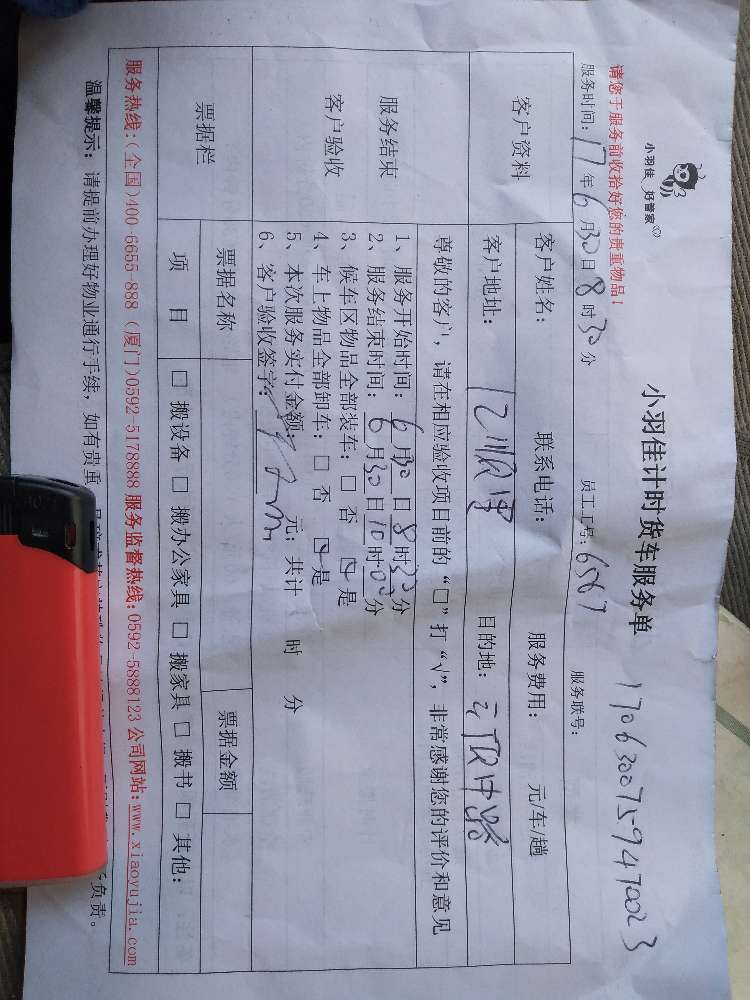 小羽佳 好管家
小羽佳计时货车服务单
170630075947023
请您于服务前收拾好您的贵重物品！
服务时间：17年6月30日8时30分 员工工号：6567 服务联号：
客户资料
客户姓名： 联系电话： 服务费用： 元/车/趟
客户地址： 目的地：云顶中路
服务结束
客户验收
尊敬的客户，请在相应验收项目前的“□”打“√”，非常感谢您的评价和意见
1、服务开始时间：6月30日8时30分
2、服务结束时间：6月30日10时00分
3、候车区物品全部装车：□ 否 ☑ 是
4、车上物品全部卸车：□ 否 ☑ 是
5、本次服务实付金额： 元；共计 时 分
6、客户验收签字：
票据栏
票据名称 票据金额
项 目 □ 搬设备 □ 搬办公家具 □ 搬家具 □ 搬书 □ 其他：
服务热线：（全国）400-6655-888 （厦门）0592-5178888 服务监督热线：0592-5888123 公司网站：www.xiaoyujia.com
温馨提示：请提前办理好物业通行手续，如有贵重 负责。